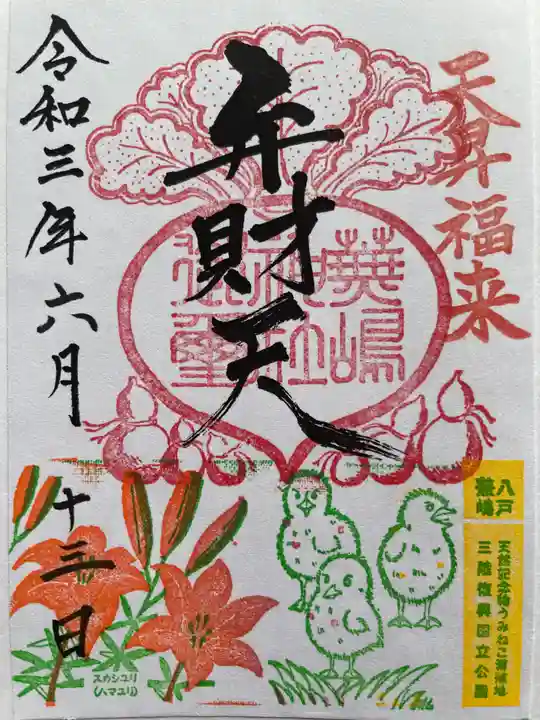 天昇福来
弁財天
蕪嶋
神社
御璽
令和三年六月十三日
八戸
蕪嶋
天然記念物うみねこ蕃殖地
三陸復興国立公園
スカシユリ
(ハマユリ)